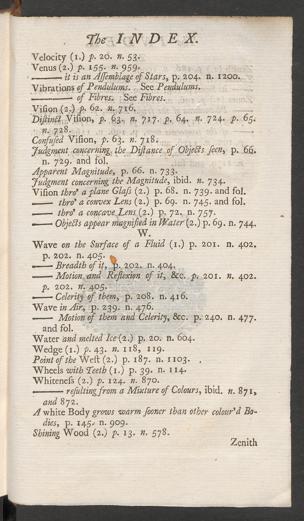 The INDEX.
Velocity (1.) p. 20. n. 53.
Venus (2.) p. 155. n. 959.
—— it is an Assemblage of Stars, p. 204. n. 1200.
Vibrations of Pendulums. See Pendulums.
—— of Fibres. See Fibres.
Vision (2.) p. 62. n. 716.
Distinct Vision, p. 63. n. 717. p. 64. n. 724. p. 65.
n. 728.
Confused Vision, p. 63. n. 718.
Judgment concerning the Distance of Objects seen, p. 66.
n. 729. and fol.
Apparent Magnitude, p. 66. n. 733.
Judgment concerning the Magnitude, ibid. n. 734.
Vision thro' a plane Glass (2.) p. 68. n. 739. and fol.
—— thro' a convex Lens (2.) p. 69. n. 745. and fol.
—— thro' a concave Lens (2.) p. 72. n. 757.
—— Objects appear magnified in Water (2.) p. 69. n. 744.
W.
Wave on the Surface of a Fluid (1.) p. 201. n. 402.
p. 202. n. 405.
—— Breadth of it, p. 202. n. 404.
—— Motion and Reflexion of it, &c. p. 201. n. 402.
p. 202. n. 405.
—— Celerity of them, p. 208. n. 416.
Wave in Air, p. 239. n. 476.
—— Motion of them and Celerity, &c. p. 240. n. 477.
and fol.
Water and melted Ice (2.) p. 20. n. 604.
Wedge (1.) p. 43. n. 118, 119.
Point of the West (2.) p. 187. n. 1103.
Wheels with Teeth (1.) p. 39. n. 114.
Whiteness (2.) p. 124. n. 870.
—— resulting from a Mixture of Colours, ibid. n. 871,
and 872.
A white Body grows warm sooner than other colour'd Bo-
dies, p. 145. n. 909.
Shining Wood (2.) p. 13. n. 578.
Zenith